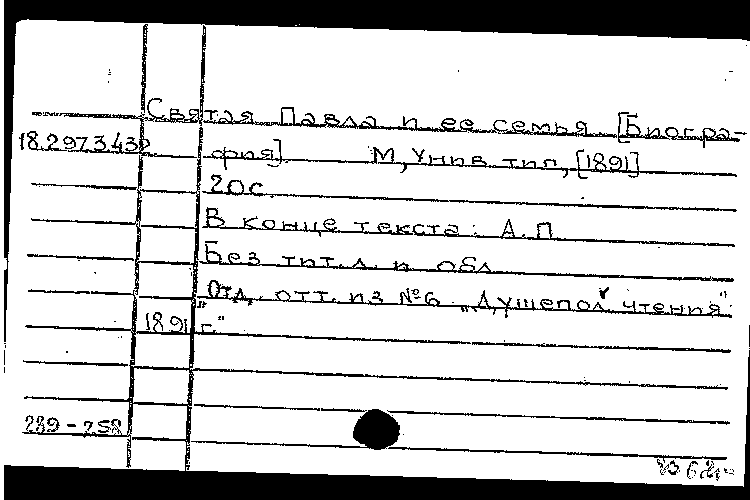 Святая Павла и ее семья [Биогра-
18.297.3.432 фия] М, Унив тип, [1891]
20с.
В конце текста: А. П
Без тит. л. и обл
Отд. отт. из №6 „Душепол чтения"
"1891 г."
239-258